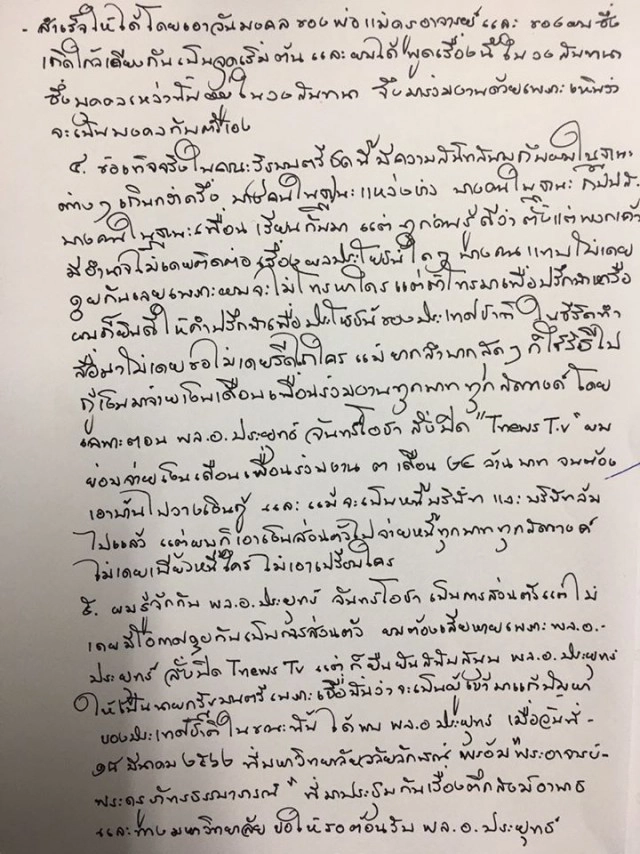 - สำเร็จให้ได้โดยเอาวันมงคลของพ่อแม่ครูอาจารย์ และ ของผมซึ่ง
เกิดใกล้เคียงกันเป็นจุดเริ่มต้น และผมได้พูดเรื่องนี้ในวงสนทนา
ซึ่งบุคคลเหล่านั้นในวงสนทนา จึงมาร่วมงานด้วยเพราะเห็นว่า
จะเป็นมงคลกับตัวเอง
๔. ข้อเท็จจริงในคณะรัฐมนตรีชุดนี้ มีความสนิทสนมกับผมในฐานะ
ต่างๆ เกินกว่าครึ่ง บางคนในฐานะแหล่งข่าว บางคนในฐานะ กปปส.
บางคนในฐานะเพื่อนเรียนกันมา แต่ทุกคนรู้ดีว่า ตั้งแต่พวกเค้า
มีอำนาจไม่เคยติดต่อเรื่องผลประโยชน์ใดๆ บางคนแทบไม่เคย
คุยกันเลยเพราะผมจะไม่โทรหาใคร แต่ถ้าโทรมาเพื่อปรึกษาหารือ
ผมก็ยินดีให้คำปรึกษาเพื่อประโยชน์ของประเทศชาติ ในชีวิตทำ
สื่อมาไม่เคยขอไม่เคยรีดไถใคร แม้ยากลำบากสุดๆ ก็ใช้วิธีไป
กู้เงินมาจ่ายเงินเดือนเพื่อนร่วมงานทุกบาททุกสตางค์ โดย
เฉพาะตอน พล.อ.ประยุทธ์ จันทร์โอชา สั่งปิด "Tnews T.V" ผม
ยอมจ่ายเงินเดือนเพื่อนร่วมงาน ๓ เดือน ๒๔ ล้านบาท จนต้อง
เอาบ้านไปวางเงินกู้ และ แม้จะเป็นหนี้บริษัท และบริษัทล้ม
ไปแล้ว แต่ผมก็เอาเงินส่วนตัวไปจ่ายหนี้ทุกบาททุกสตางค์
ไม่เคยเบี้ยวหนี้ใคร ไม่เอาเปรียบใคร
๕. ผมรู้จักกับ พล.อ.ประยุทธ์ จันทร์โอชา เป็นการส่วนตัวแต่ไม่
เคยมีโอกาสคุยกันเป็นการส่วนตัว ผมต้องเสียหายเพราะ พล.อ.-
ประยุทธ์ สั่งปิด Tnews TV แต่ก็ยืนยันสนับสนุน พล.อ.ประยุทธ์
ให้เป็นนายกรัฐมนตรีเพราะเชื่อมั่นว่าจะเป็นผู้เข้ามาแก้ปัญหา
ของประเทศชาติในขณะนั้น ได้พบ พล.อ ประยุทธ์ เมื่อวันที่-
๑๕ มีนาคม ๒๕๖๒ ที่มหาวิทยาลัยวลัยลักษณ์ พร้อม "พระอาจารย์-
พระครูภัทรธรรมาภรณ์" ที่มาประชุมกันเรื่องตึกสงฆ์อาพาธ
และทางมหาวิทยาลัย ขอให้รอต้อนรับ พล.อ.ประยุทธ์